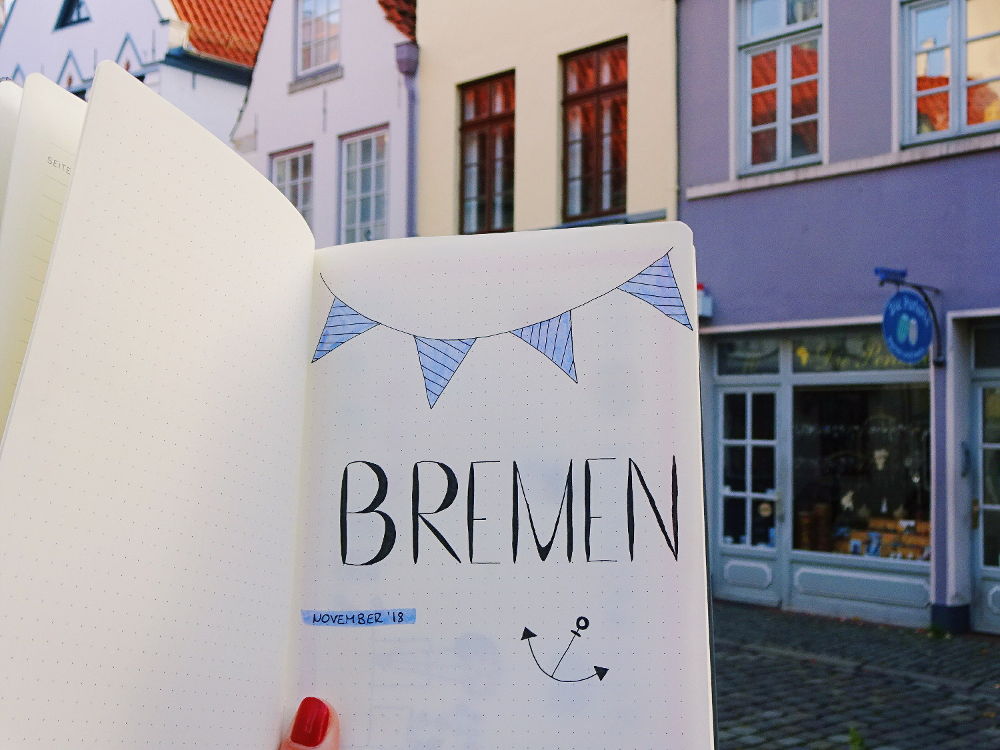 SEITE
BREMEN
NOVEMBER '18